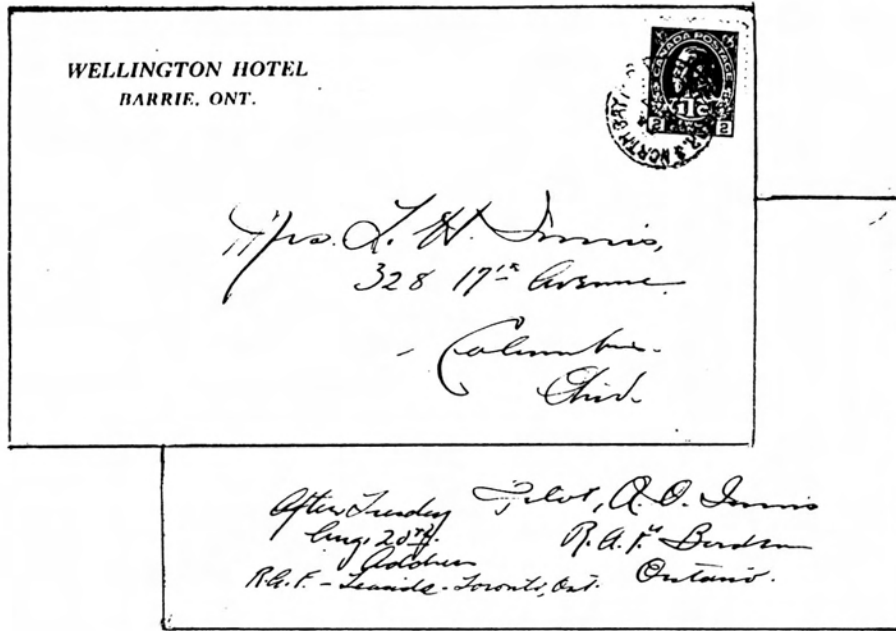 WELLINGTON HOTEL
BARRIE, ONT.
CANADA POSTAGE
1Tc
2 2
NORTH BAY
Mrs. L. H. Innis,
328 17th Avenue
Columbus
Ohio.
After Tuesday
Aug. 20th.
Address
R.A.F. - Leaside - Toronto, Ont.
Pilot, A. O. Innis
R.A.F. Borden
Ontario.